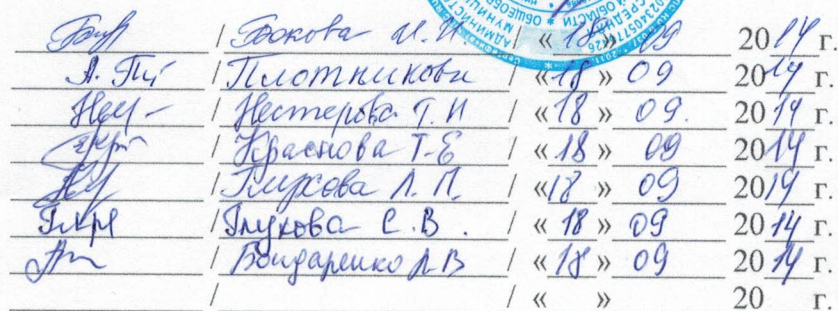 / Бокова И. И / «18» 09 2014 г.
А. Пл / Плотникова / «18» 09 2014 г.
/ Нестерова Т. И / «18» 09. 2014 г.
/ Краснова Т-Е / «18» 09 2014 г.
/ Глухова Л. П. / «18» 09 2014 г.
/ Глухова С. В. / «18» 09 2014 г.
/ Бондаренко Л В / «18» 09 2014 г.
/ / « » 20 г.